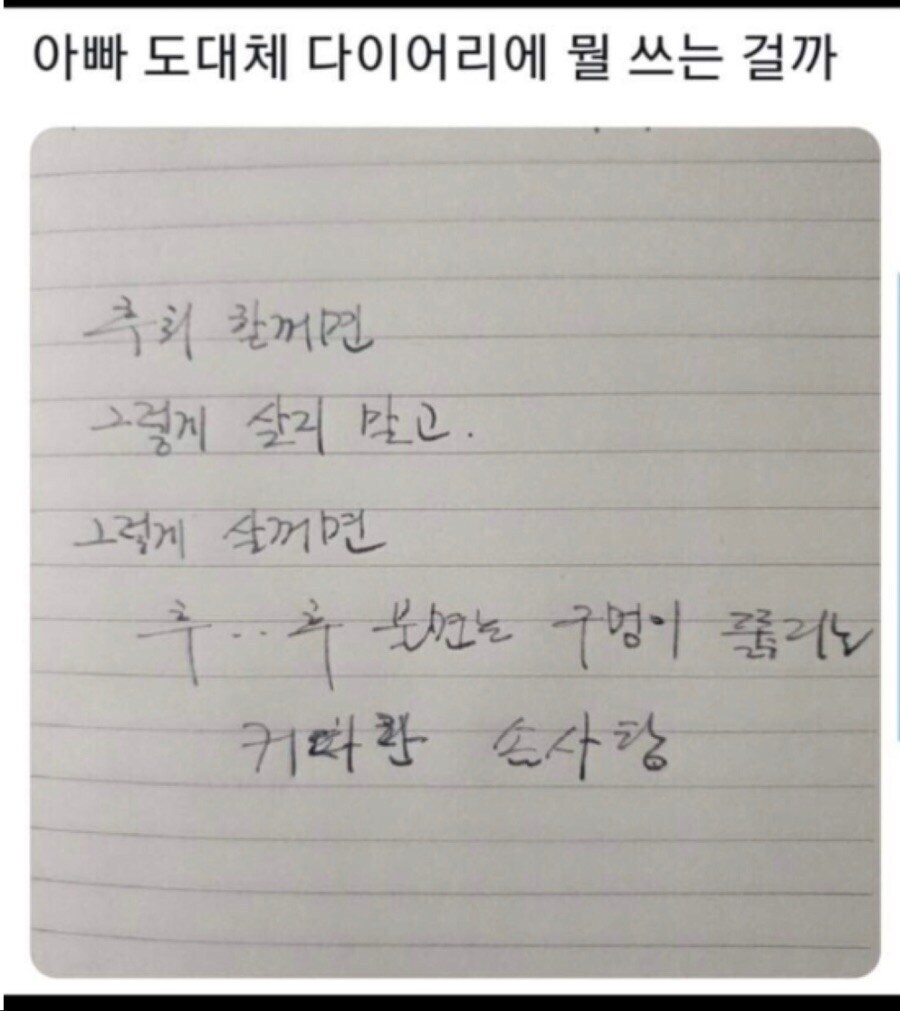 아빠 도대체 다이어리에 뭘 쓰는 걸까
후회 할꺼면
그렇게 살지 말고.
그렇게 살꺼면
후..후 분면는 구멍이 뚫리는
커따란 솜사탕